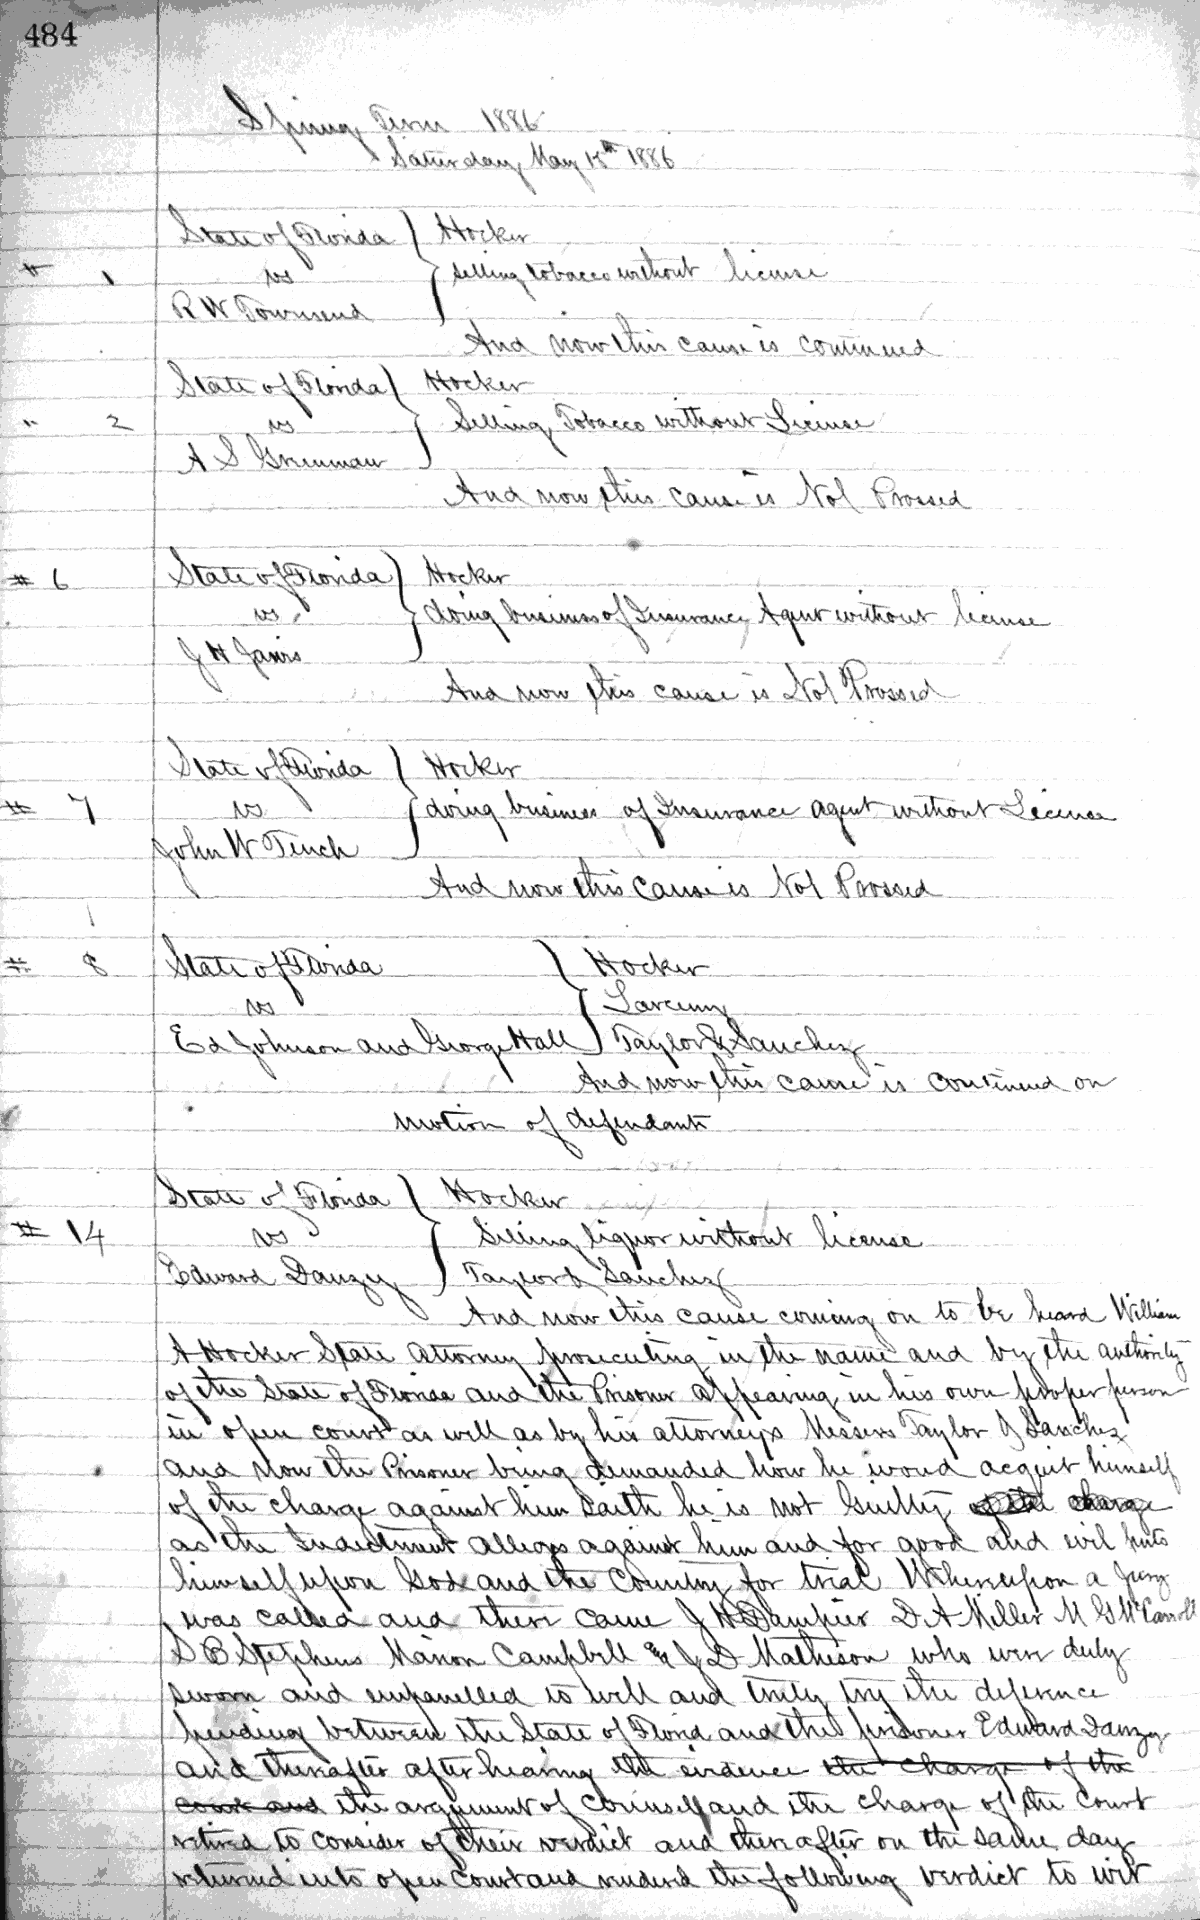 484
Spring Term 1886
Saturday May 15th 1886
State of Florida } Hocker
# 1 vs } selling tobacco without license
R W Townsend
And now this cause is continued
State of Florida } Hocker
" 2 vs } Selling Tobacco without License
A S Grenman
And now this cause is Nol Prossed
# 6 State of Florida } Hocker
vs } doing business of Insurance Agent without license
J H
And now this cause is Nol Prossed
State of Florida } Hocker
# 7 vs } doing business of Insurance agent without License
John W Tench
And now this cause is Nol Prossed
# 8 State of Florida } Hocker
vs } Larceny
Ed Johnson and George Hall } Taylor & Sanchez
And now this cause is continued on
motion of defendants
State of Florida } Hocker
# 14 vs } Selling liquor without license
Edward Danzey } Taylor & Sanchez
And now this cause coming on to be heard William
A Hocker State attorney prosecuting in the name and by the authority
of the State of Florida and the Prisoner appearing in his own proper person
in open court as well as by his attorneys Messers Taylor & Sanchez
and now the Prisoner being demanded how he woud acquit himself
of the charge against him saith he is not Guilty of the charge
as the Indictment alleges against him and for good and evil puts
himself upon God and the Country for trial Whereupon a Jury
was called and there came J H Dampier D A Miller M G McCarroll
S B Stephens Marion Campbell & J D Matheson who were duly
sworn and empanelled to well and truly try the deference
pending between the State of Florid and the prisoner Edward Danzey
and thereafter after hearing the evidence the charge of the
court and the argument of Counsell and the charge of the Court
retired to consider of their verdict and thereafter on the same day
returned into open court and renderd the following verdict to wit